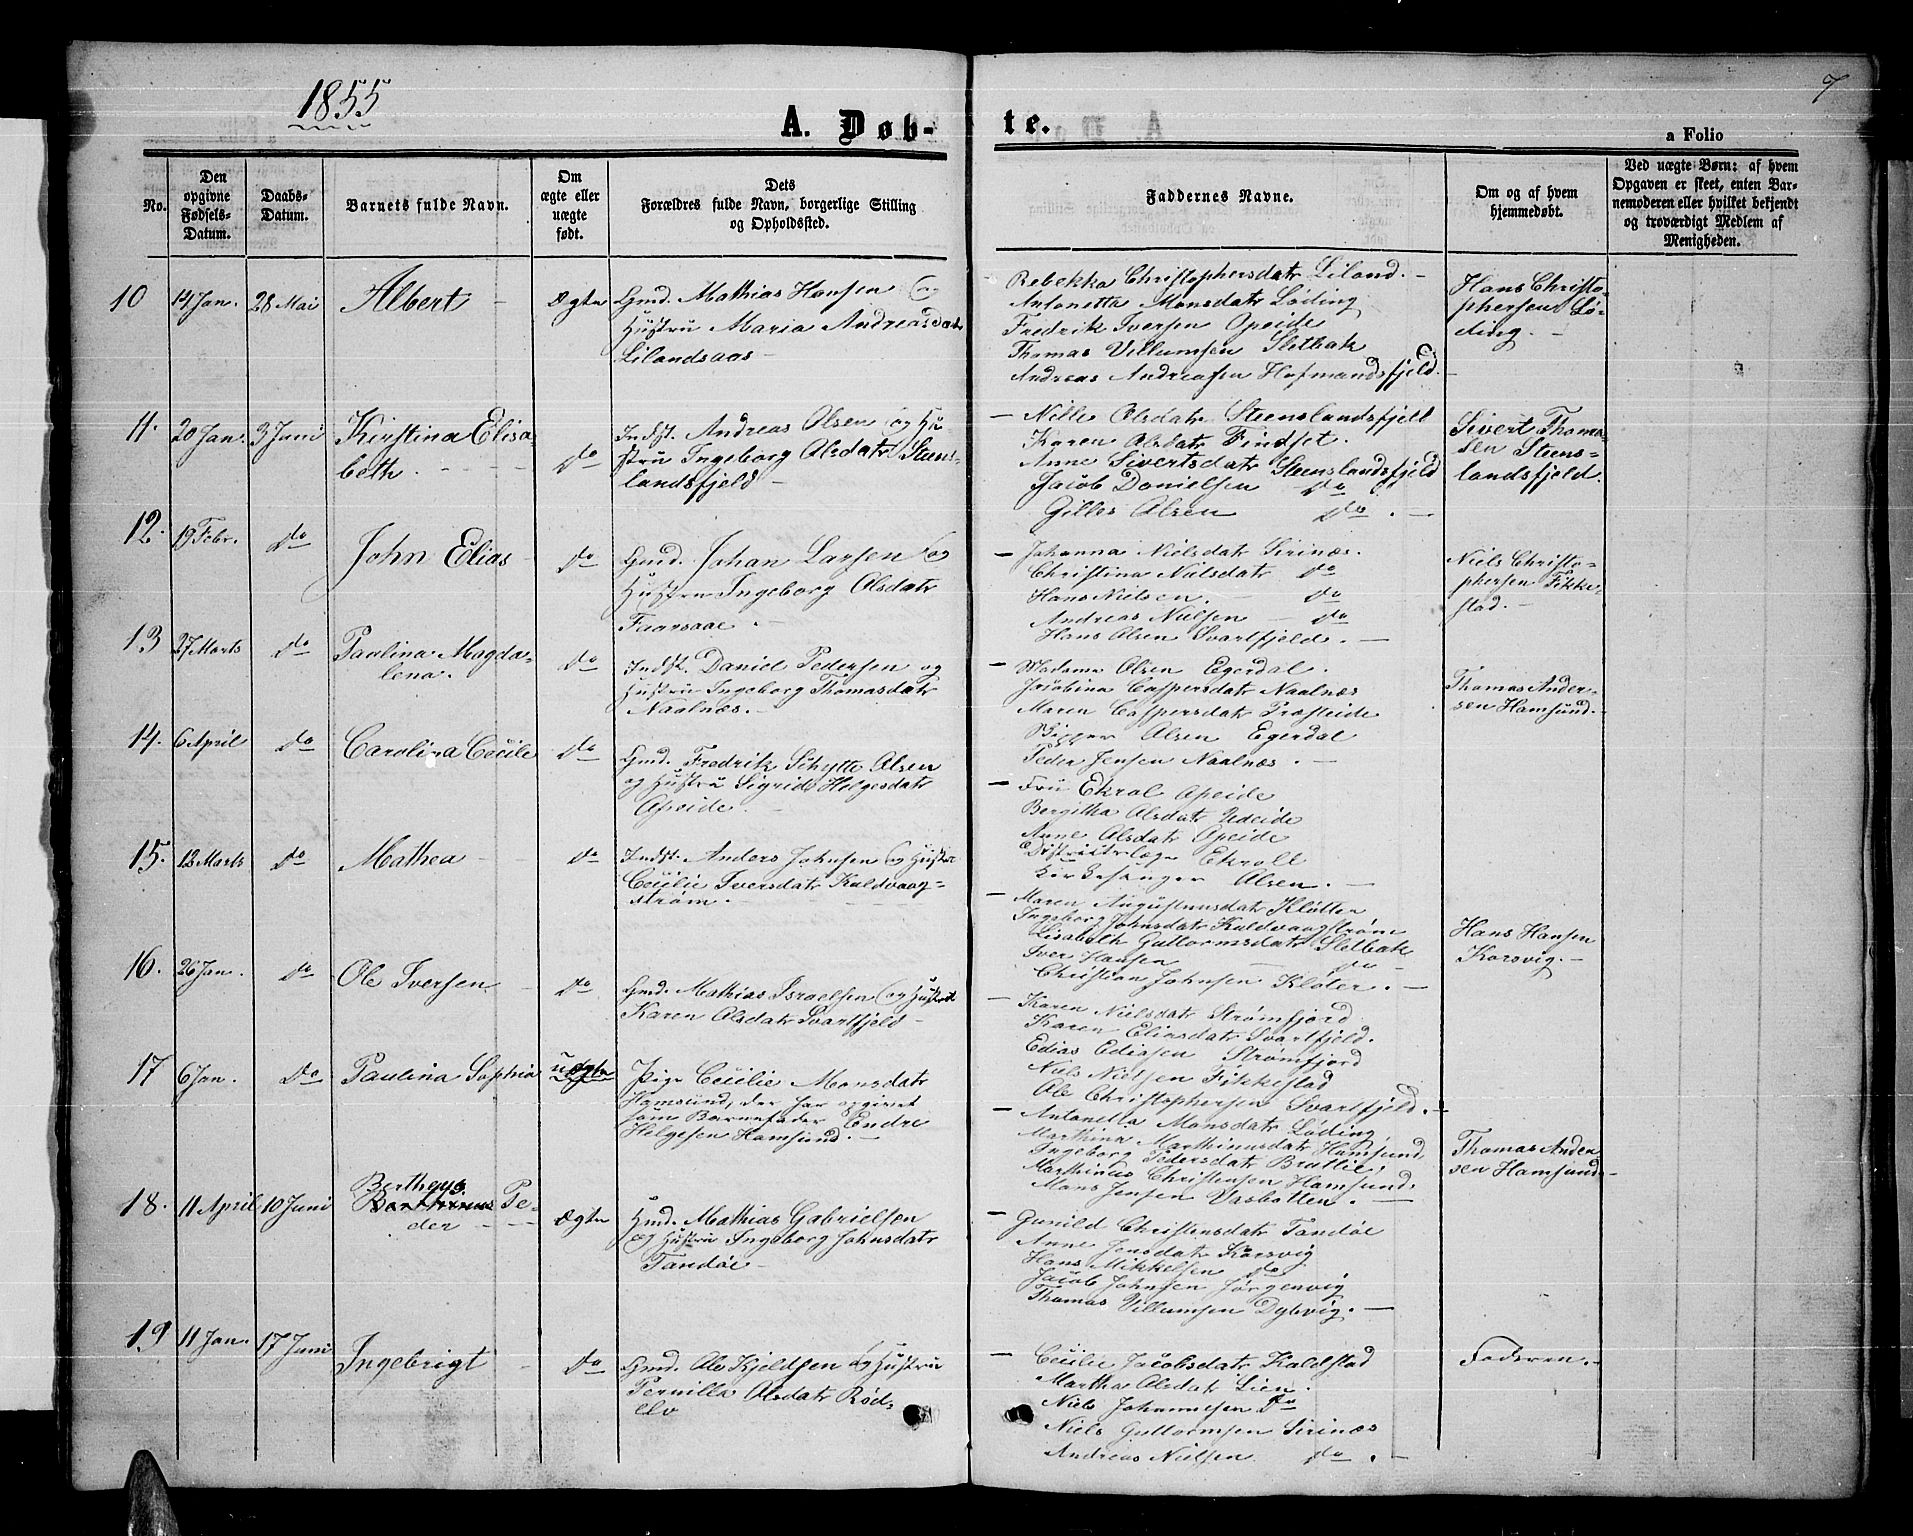 1855
7
A. Døb-
te.
a Folio
No.
Den
opgivne
Fødsels-
Datum.
Daabs-
Datum.
Barnets fulde Navn.
Om
ægte eller
uægte
født.
Dets
Forældres fulde Navn, borgerlige Stilling
og Opholdssted.
Faddernes Navne.
Om og af hvem
hjemmedøbt.
Ved uægte Børn: af hvem
Opgaven er skeet, enten Bar-
nemoderen eller hvilket bekjendt
og troværdigt Medlem af
Menigheden.
10 14 Jan. 28 Mai Albert Ægte
Gmd. Mathias Hansen og
Hustru Maria Andreasdatr
Lilandsaas
Rebekka Christophersdatr Liland.
Antonetta Monsdatr Løding
Fredrik Iversen Opeide
Thomas Villumsen Sletbak
Andreas Andreasen Hofmandsfjeld.
Hans Christo-
phersen Lø-
ding.
11. 20 Jan. 3 Juni Kirstina Elisa
beth. do
Indst. Andreas Olsen og Hu
stru Ingeborg Olsdatr Steens-
landsfjeld
Nille Olsdatr Steenslandsfjell
Karen Olsdatr Findset.
Anne Sivertsdatr Steenslandsfjeld
Jacob Danielsen do
Gilles Olsen do.
Sivert Thoma-
sen Steens-
landsfjeld.
12. 19 Febr. do John Elias do
Gmd. Johan Larsen og
Hustru Ingeborg Olsdatr
Johanna Nielsdatr Sirinæs.
Christina Nielsdatr do
Hans Nielsen. do
Andreas Nielsen do
Hans Olsen Svartfjeld.
Niels Christo-
phersen Fikke-
stad.
13 27 Marts do Paulina Magda-
lena. do
Indst. Daniel Pedersen og
Hustru Ingeborg Thomasdatr
Naalnæs.
Madame Olsen Egerdal.
Jacobina Caspersdatr Naalnæs
Maren Caspersdatr Presteide
Olsen Egerdal
Peder Jensen Naalnæs.
Thomas Ander-
sen Hamsund.
14. 6 April do Carolina Cecile do
Gmd. Fredrik Schytte Olsen
og Hustru Sigrid Helgesdatr
Opeide.
Fru Ekrol Opeide
Bergitha Olsdatr Udeide
Anne Olsdatr Opeide
Districtslæge Ekroll
Kirkesanger Olsen.
15. 12 Marts do Mathea do
Indst. Anders Johnsen og Hustru
Cecilie Iversdatr Kaldvaag-
strøm.
Maren Augustinusdatr Kløtten
Ingeborg Johnsdatr Kaldvaagstrøm
Lisabeth Guttormsdatr Sletbak
Iver Hansen do
Christian Johnsen Kløter.
Hans Hansen
Korsvig.
16. 26 Jan. do Ole Iversen do
Gmd. Mathias Israelsen og Hustru
Karen Olsdatr Svartfjeld
Karen Nielsdatr Strømfjord
Karen Eliasdatr Svartfjeld.
Edias Ediasen Strømfjord
Niels Nielsen Fikkestad
Ole Christophersen Svartfjeld.
17 6 Jan. do Paulina Sophia uægte
Pige Cecilie Monsdatr
Hamsund, der har opgivet
som Barnefader Endre
Helgesen Hamsund.
Antonetta Monsdatr Løding,
Marthina Marthinusdatr Hamsund
Ingeborg Pedersdatr Brattlie,
Marthinus Christensen Hamsund
Mons Jensen Vasbotten.
Thomas Ander
sen Hamsund
18. 11 April 10 Juni Bertheus
Barthinus Pe-
der Ægte
Gmd. Mathias Gabrielsen
og Hustru Ingeborg Johnsdatr
Tandøe
Gunild Christensdatr Tandøe
Anne Jensdatr Korsvig
Hans Mikkelsen do
Jacob Johnsen Jørgenvig
Thomas Villumsen Dybvig.
19 11 Jan. 17 Juni Ingebrigt do
Gmd. Ole Kjeldsen og Hustru
Pernilla Olsdatr Rød-
elv
Cecilie Jacobsdatr Kaldstad
Martha Olsdatr Lien.
Niels Johannesen do
Niels Guttormsen Sirinæs
Andreas Nielsen do.
Faderen.